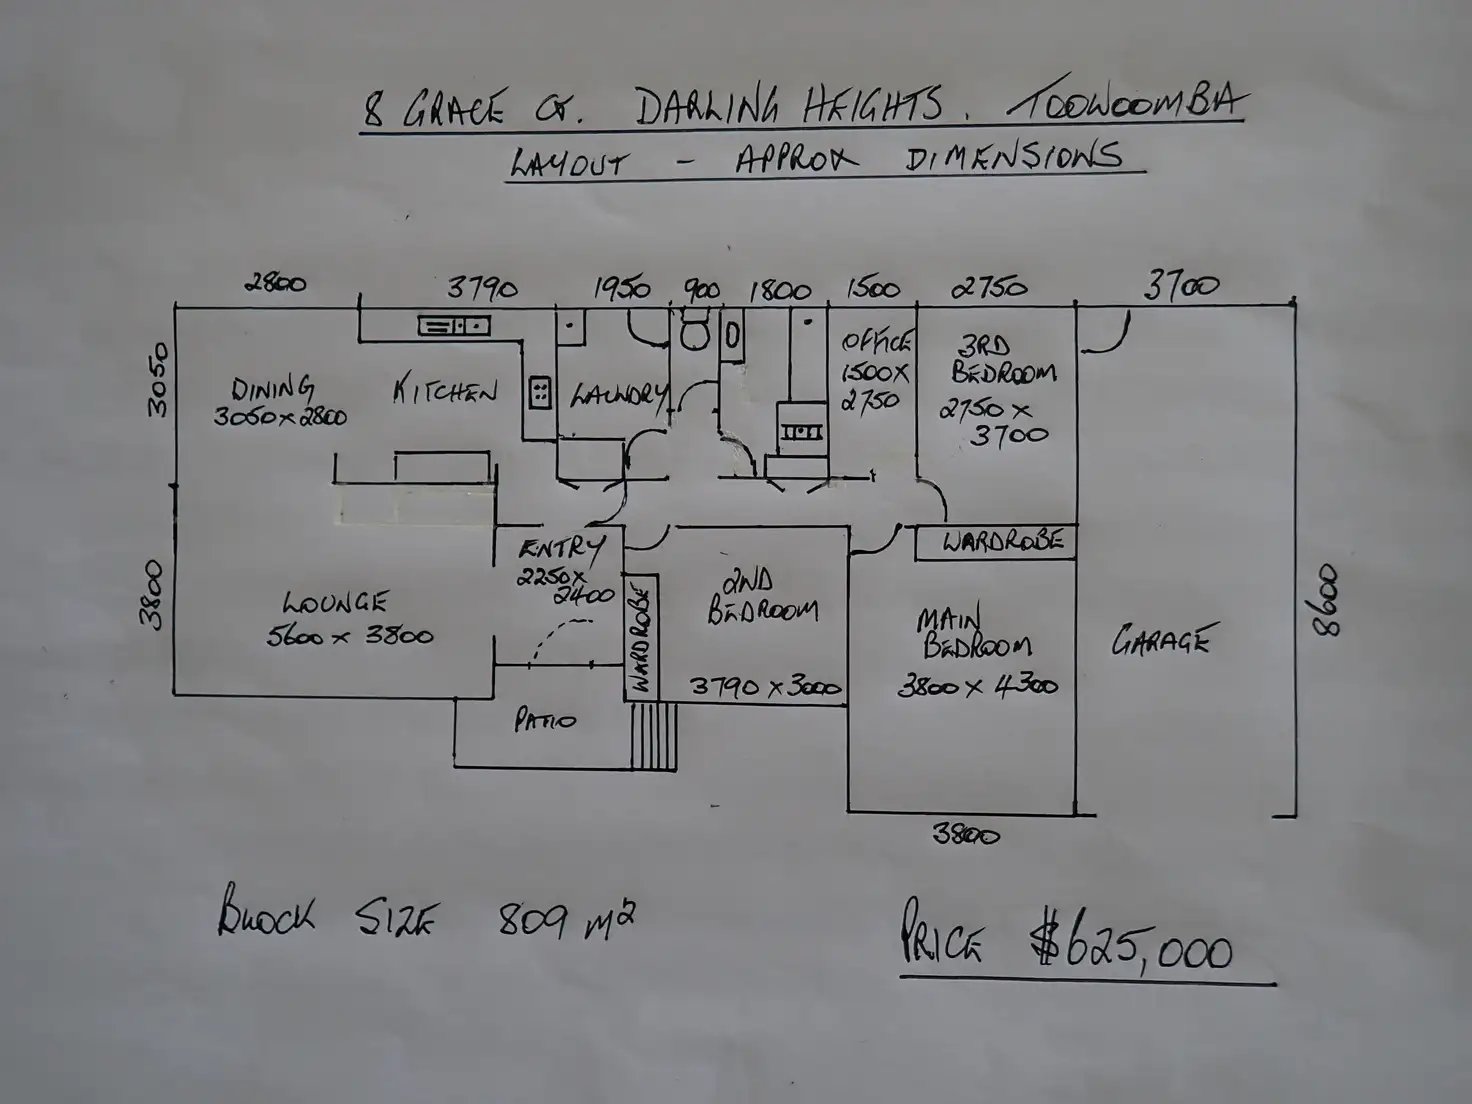 8 GRACE CT. DARLING HEIGHTS. TOOWOOMBA
LAYOUT - APPROX DIMENSIONS
2800 3790 1950 900 1800 1500 2750 3700
3050
DINING
3050 x 2800
KITCHEN
LAUNDRY
OFFICE
1500 x
2750
3RD
BEDROOM
2750 x
3700
3800
LOUNGE
5600 x 3800
ENTRY
2250 x
2400
WARDROBE
2ND
BEDROOM
3790 x 3000
WARDROBE
MAIN
BEDROOM
3800 x 4300
GARAGE
8600
PATIO
3800
BLOCK SIZE 809 m²
PRICE $625,000